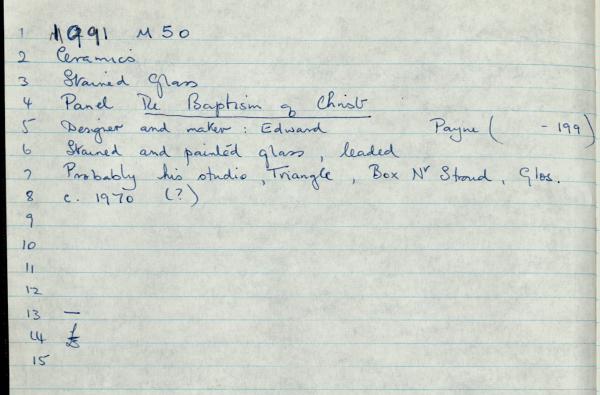 1 1991 M 50
2 Ceramics
3 Stained Glass
4 Panel The Baptism of Christ
5 Designer and maker : Edward Payne ( - 199 )
6 Stained and painted glass, leaded
7 Probably his studio, Triangle, Box Nr Stroud, Glos.
8 c. 1970 (?)
9
10
11
12
13 —
14 £
15